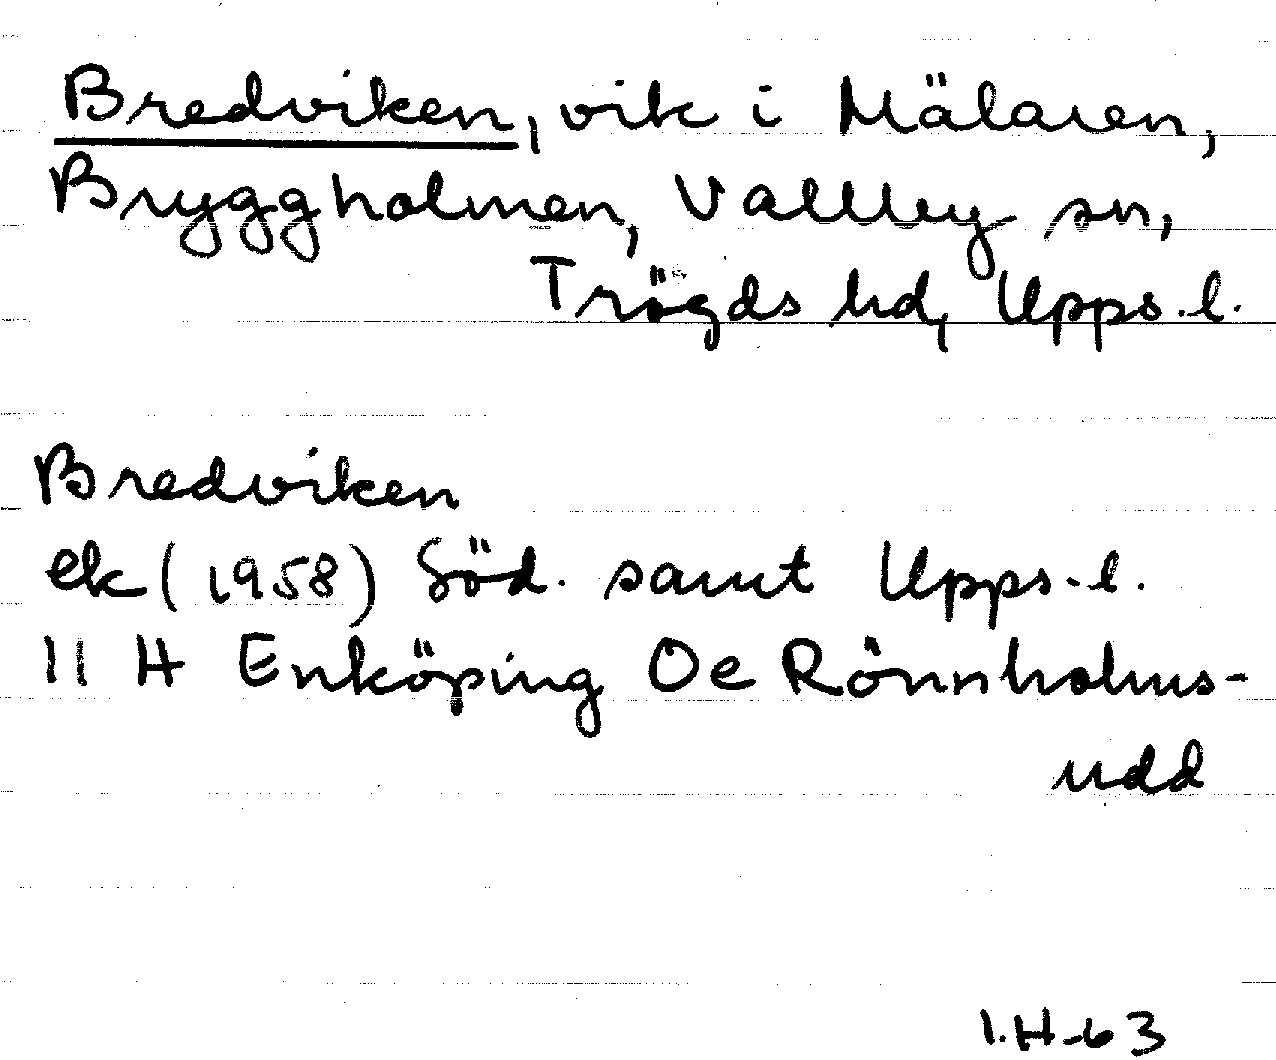 Bredviken, vik i Mälaren,
Bryggholmen, Vallby sn,
Trögds hd, Upps.l.
Bredviken
ek (1958) Söd. samt Upps.l.
11 H Enköping Oe Rönnholms-
udd
I.H-63